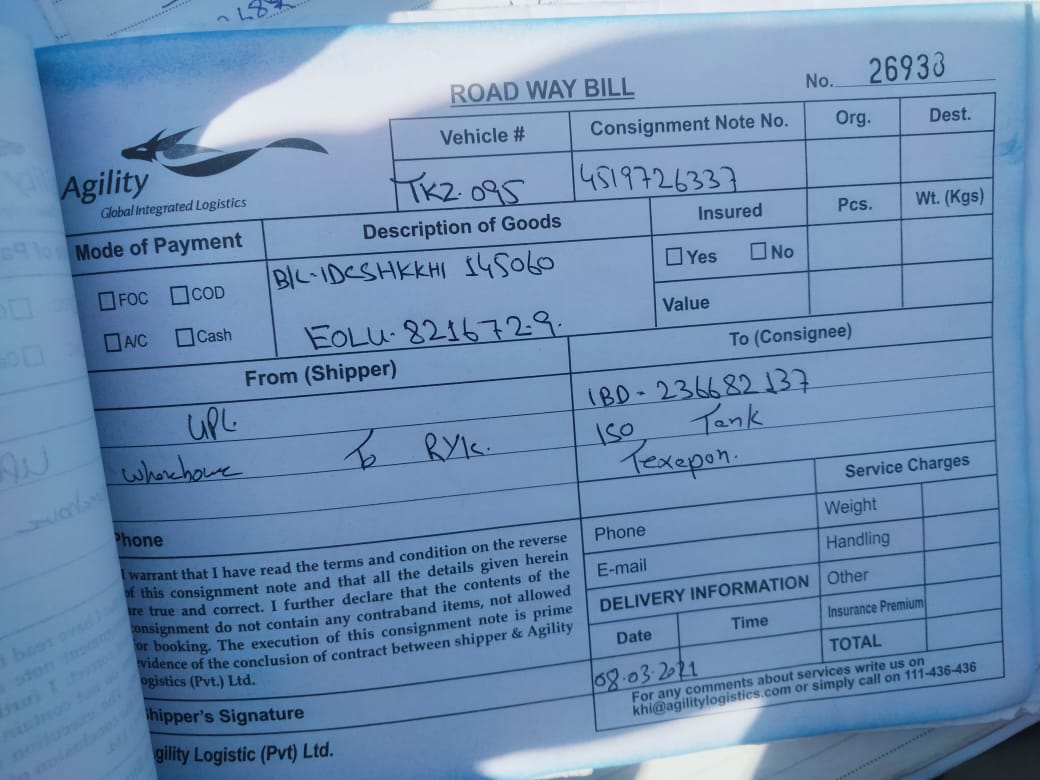 ROAD WAY BILL
No. 26938
Agility
Global Integrated Logistics
Vehicle #
Consignment Note No.
Org.
Dest.
TKZ-095
4519726337
Mode of Payment
Description of Goods
Insured
Pcs.
Wt. (Kgs)
FOC
COD
A/C
Cash
B/L-IDCSHKKHI 145060
EOLU-821672-9.
Yes
No
Value
From (Shipper)
To (Consignee)
UPL
To RYK.
IBD-236682137
ISO Tank
Phone
I warrant that I have read the terms and condition on the reverse
of this consignment note and that all the details given herein
are true and correct. I further declare that the contents of the
consignment do not contain any contraband items, not allowed
for booking. The execution of this consignment note is prime
evidence of the conclusion of contract between shipper & Agility
Logistics (Pvt.) Ltd.
Shipper's Signature
Agility Logistic (Pvt) Ltd.
Phone
E-mail
DELIVERY INFORMATION
Date
Time
08-03-2021
Service Charges
Weight
Handling
Other
Insurance Premium
TOTAL
For any comments about services write us on
khi@agilitylogistics.com or simply call on 111-436-436